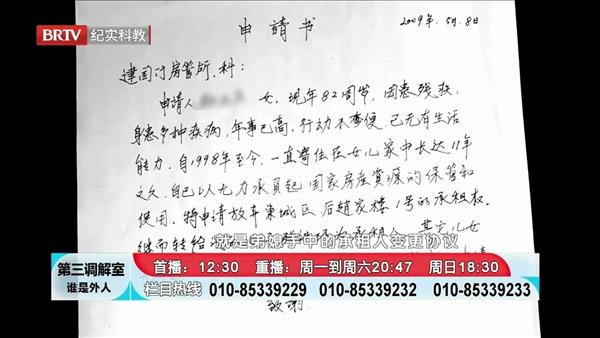 BRTV 纪实科教
申请书
2009年.5月.8日
建国门房管所.科:
申请人 女,现年82周岁,因患残疾
身患多种疾病,年事已高,行动不变便,已无有生活
能力,自1998年至今,一直寄住在女儿家中长达11年
之久,自己以无力承负起国家房产资源的保管和
使用,特申请放弃东城区后赵家楼1号的承租权.
继而转给 其它儿女
就是弟媳手中的承租人变更协议
第三调解室
谁是外人
首播:12:30 重播:周一到周六20:47 周日18:30
栏目热线 010-85339229 010-85339232 010-85339233
致谢.